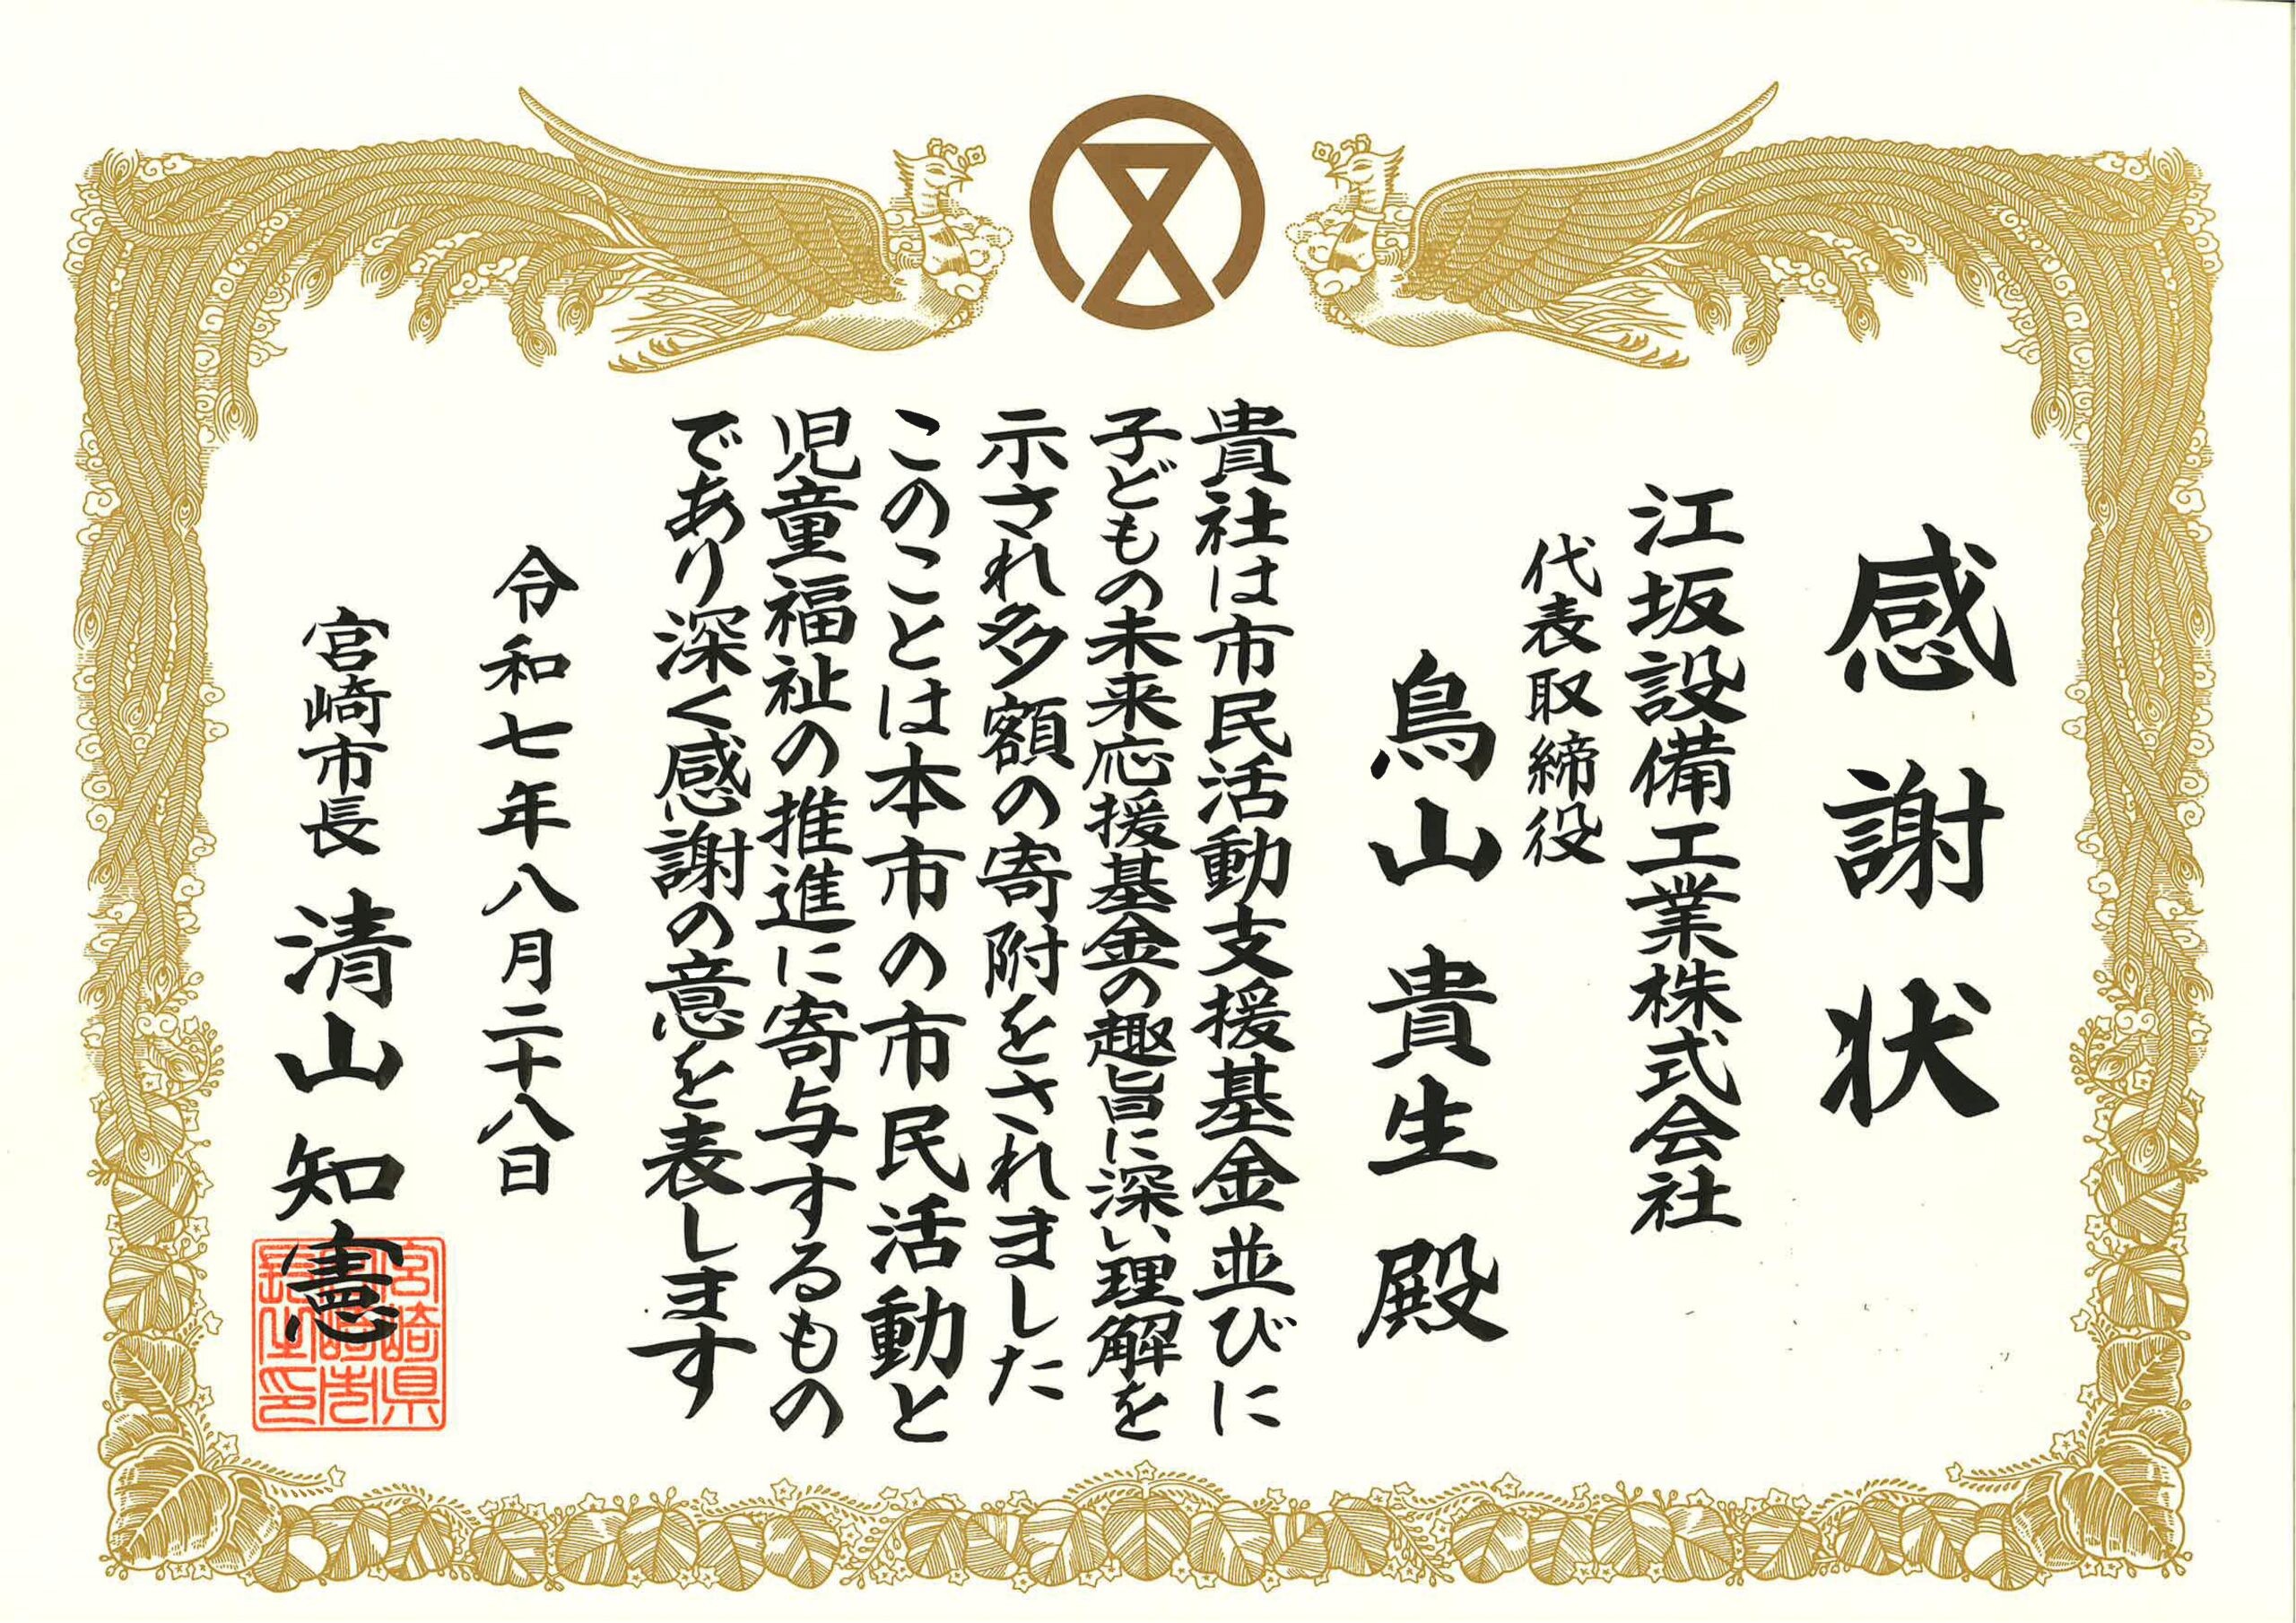 感謝状
江坂設備工業株式会社
代表取締役
鳥山貴生殿
貴社は市民活動支援基金並びに
子どもの未来応援基金の趣旨に深い理解を
示され多額の寄附をされました
このことは本市の市民活動と
児童福祉の推進に寄与するもの
であり深く感謝の意を表します
令和七年八月二十八日
宮崎市長 清山知憲
宮崎県
宮崎市
長之印